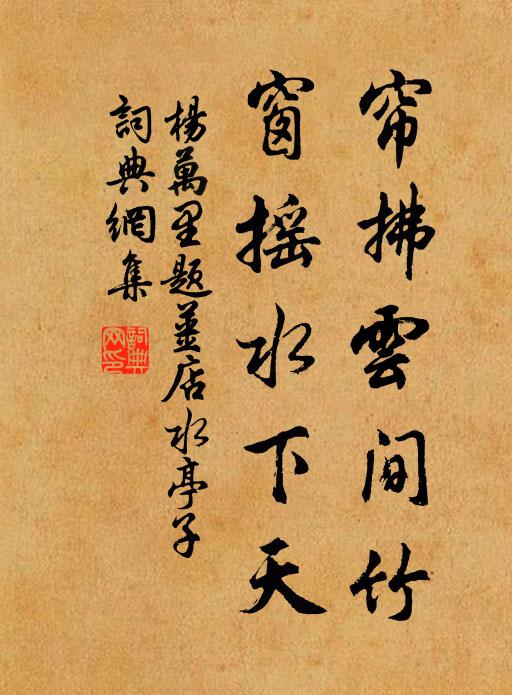 帘拂雲間竹
窗摇水下天
楊萬里題薑店水亭子
詞典網集
詞典
网印